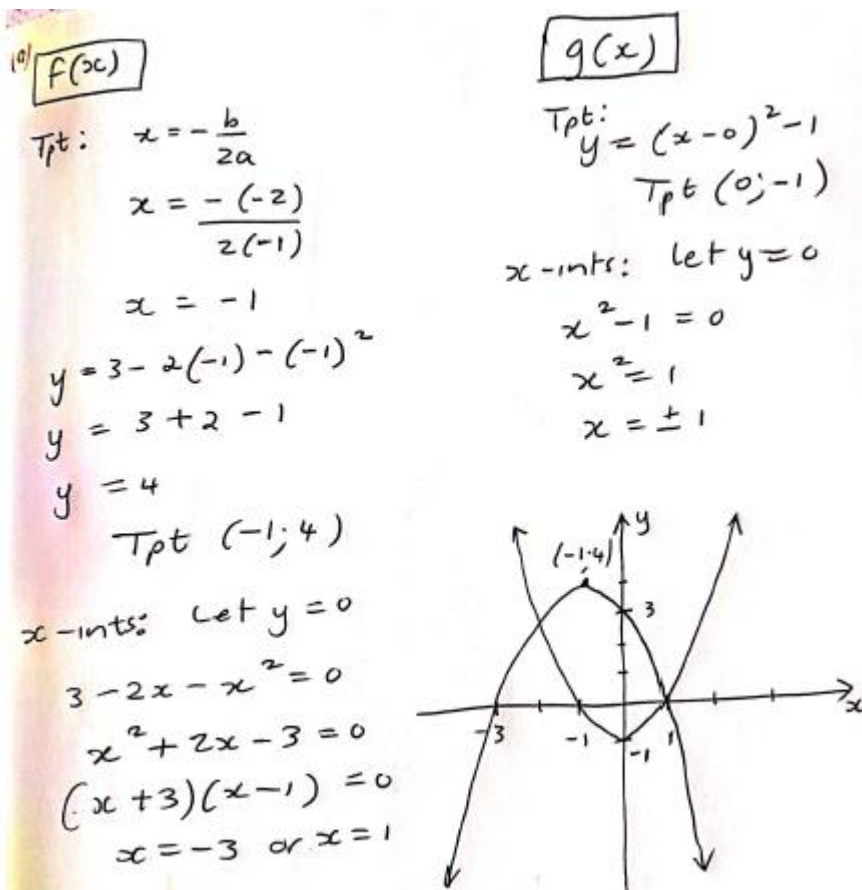 (a) f(x)
Tpt: x = - b/2a
x = -(-2)/2(-1)
x = -1
y = 3 - 2(-1) - (-1)²
y = 3 + 2 - 1
y = 4
Tpt (-1; 4)
x-ints: Let y = 0
3 - 2x - x² = 0
x² + 2x - 3 = 0
(x + 3)(x - 1) = 0
x = -3 or x = 1
g(x)
Tpt:
y = (x - 0)² - 1
Tpt (0; -1)
x-ints: let y = 0
x² - 1 = 0
x² = 1
x = ± 1
y
(-1·4)
3
x
-3 -1 -1 1